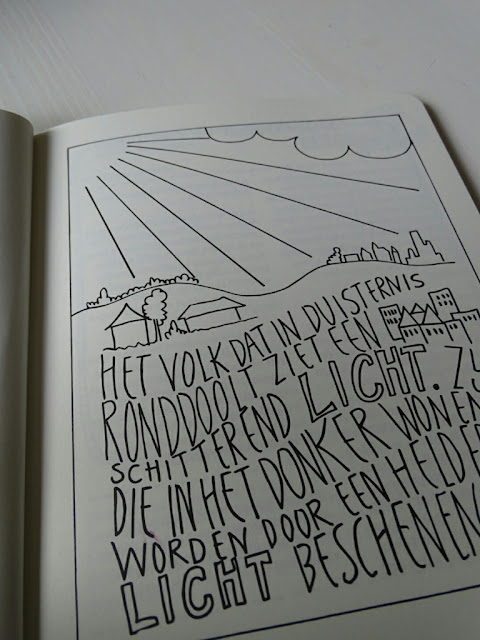 HET VOLK DAT IN DUISTERNIS
RONDDOOLT ZIET EEN
SCHITTEREND LICHT. ZIJ
DIE IN HET DONKER WONEN
WORDEN DOOR EEN HELDER
LICHT BESCHENEN